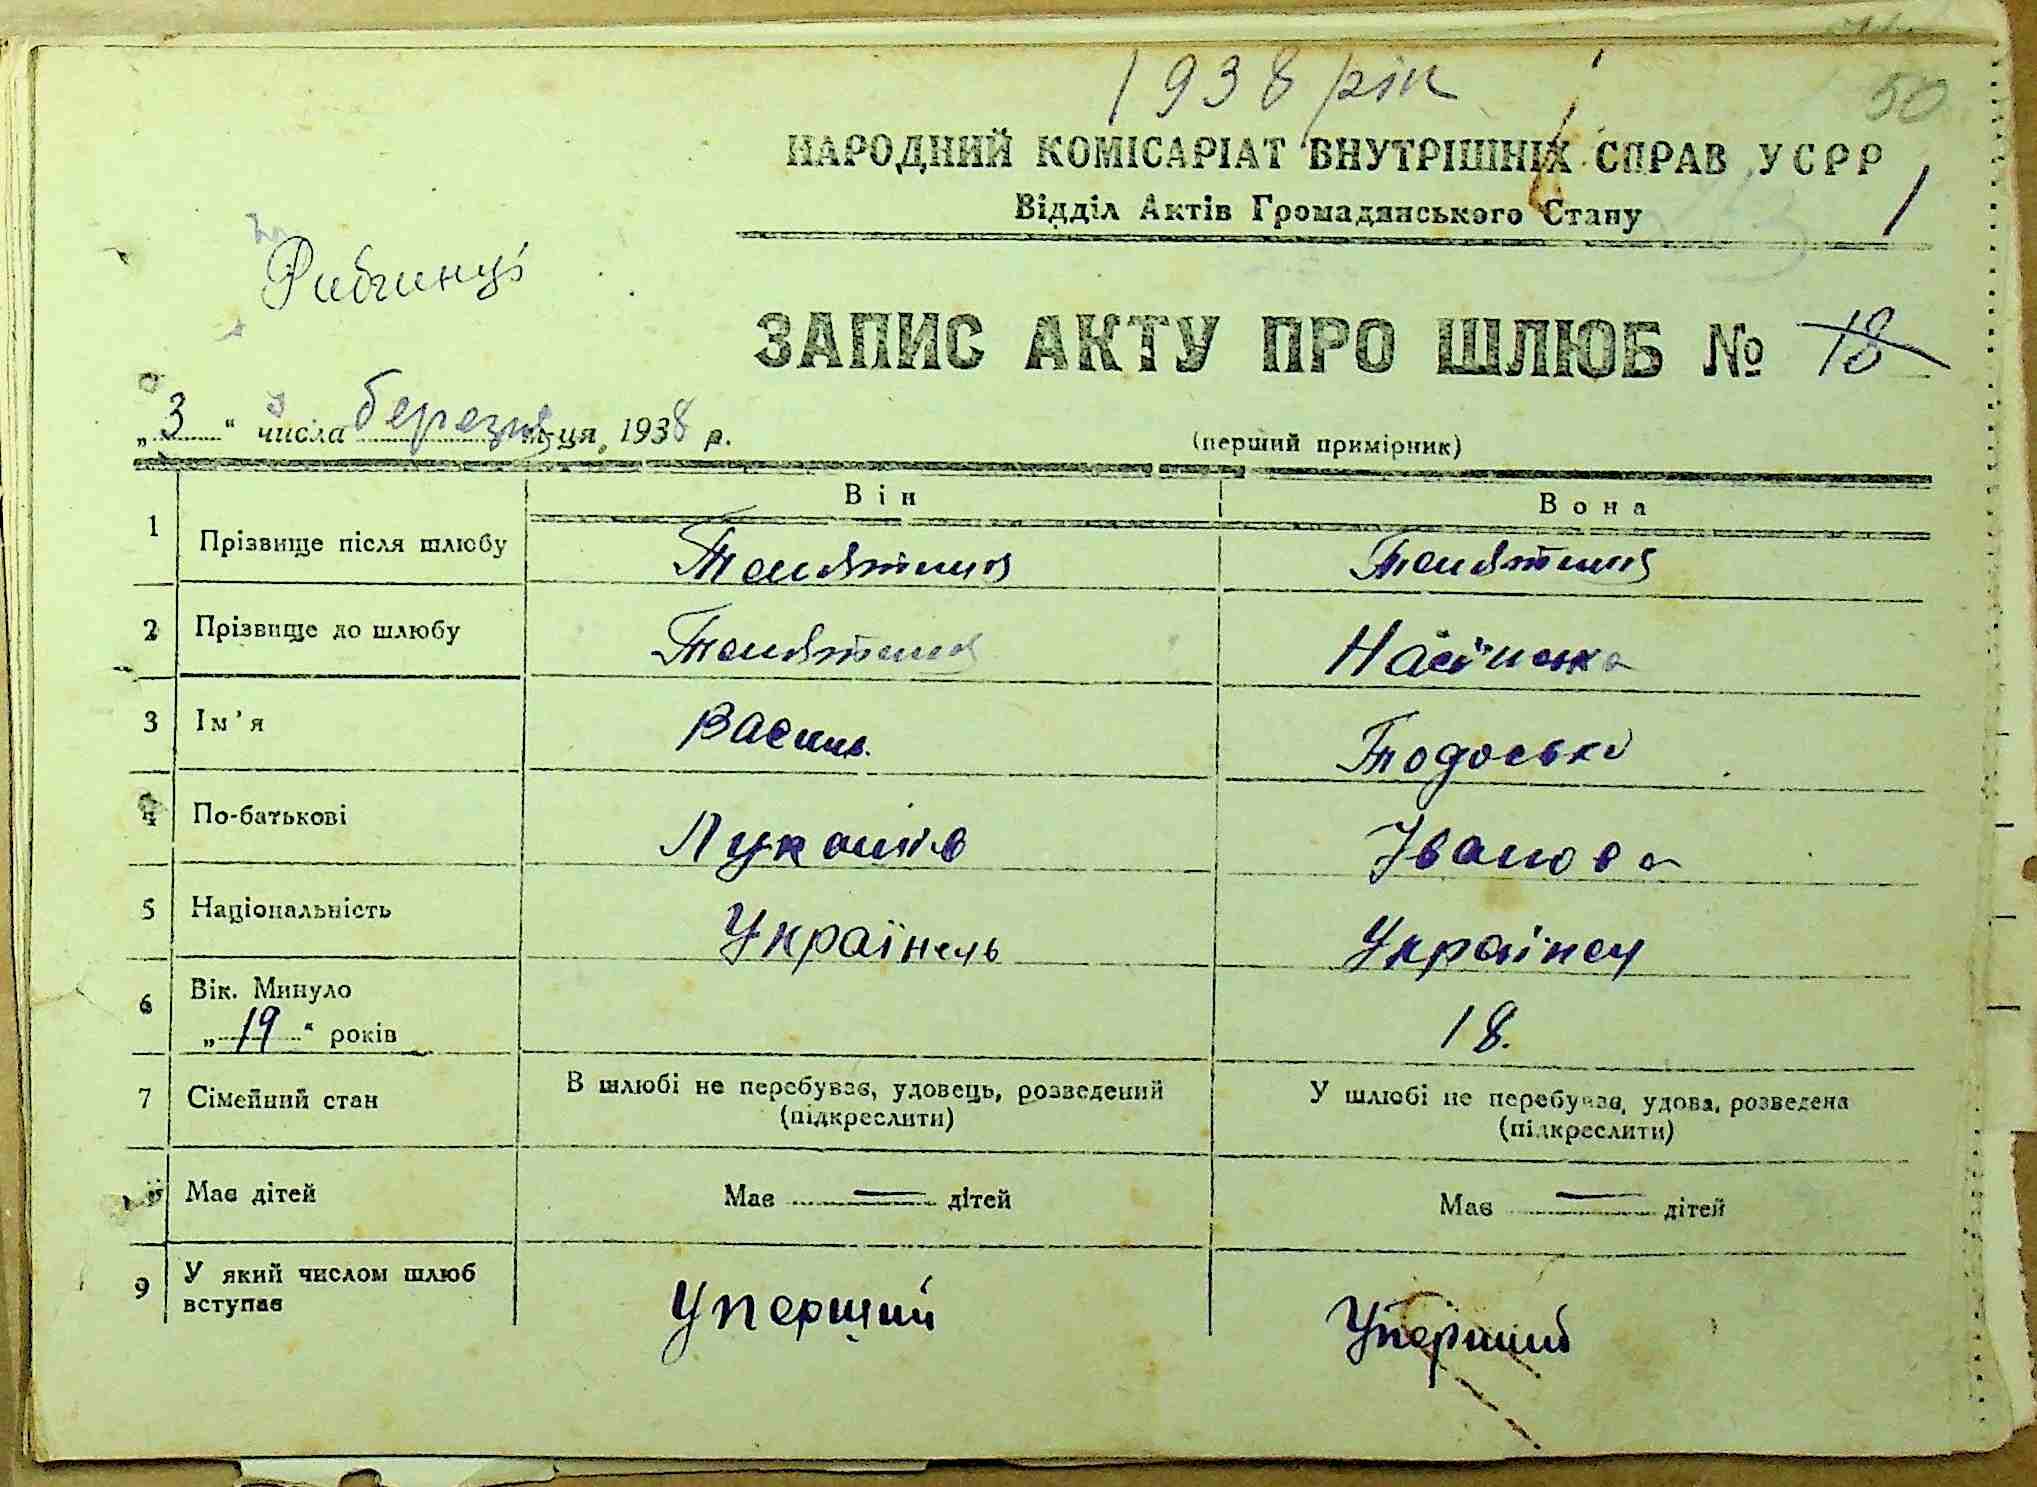 1938 рік
50
НАРОДНИЙ КОМІСАРІАТ ВНУТРІШНІХ СПРАВ УСРР
Відділ Актів Громадянського Стану
1
ЗАПИС АКТУ ПРО ШЛЮБ № 18
„3“ числа березня м-ця, 1938 р.
(перший примірник)
Він Вона
1 Прізвище після шлюбу
2 Прізвище до шлюбу
3 Ім'я Василь Тодоська
4 По-батькові Лукашів Іванова
5 Національність Українець Українец
6 Вік. Минуло
„19“ років 18.
7 Сімейний стан В шлюбі не перебував, удовець, розведений (підкреслити) У шлюбі не перебуває, удова, розведена (підкреслити)
8 Має дітей Має — дітей Має — дітей
9 У який числом шлюб вступає Уперший Уперший